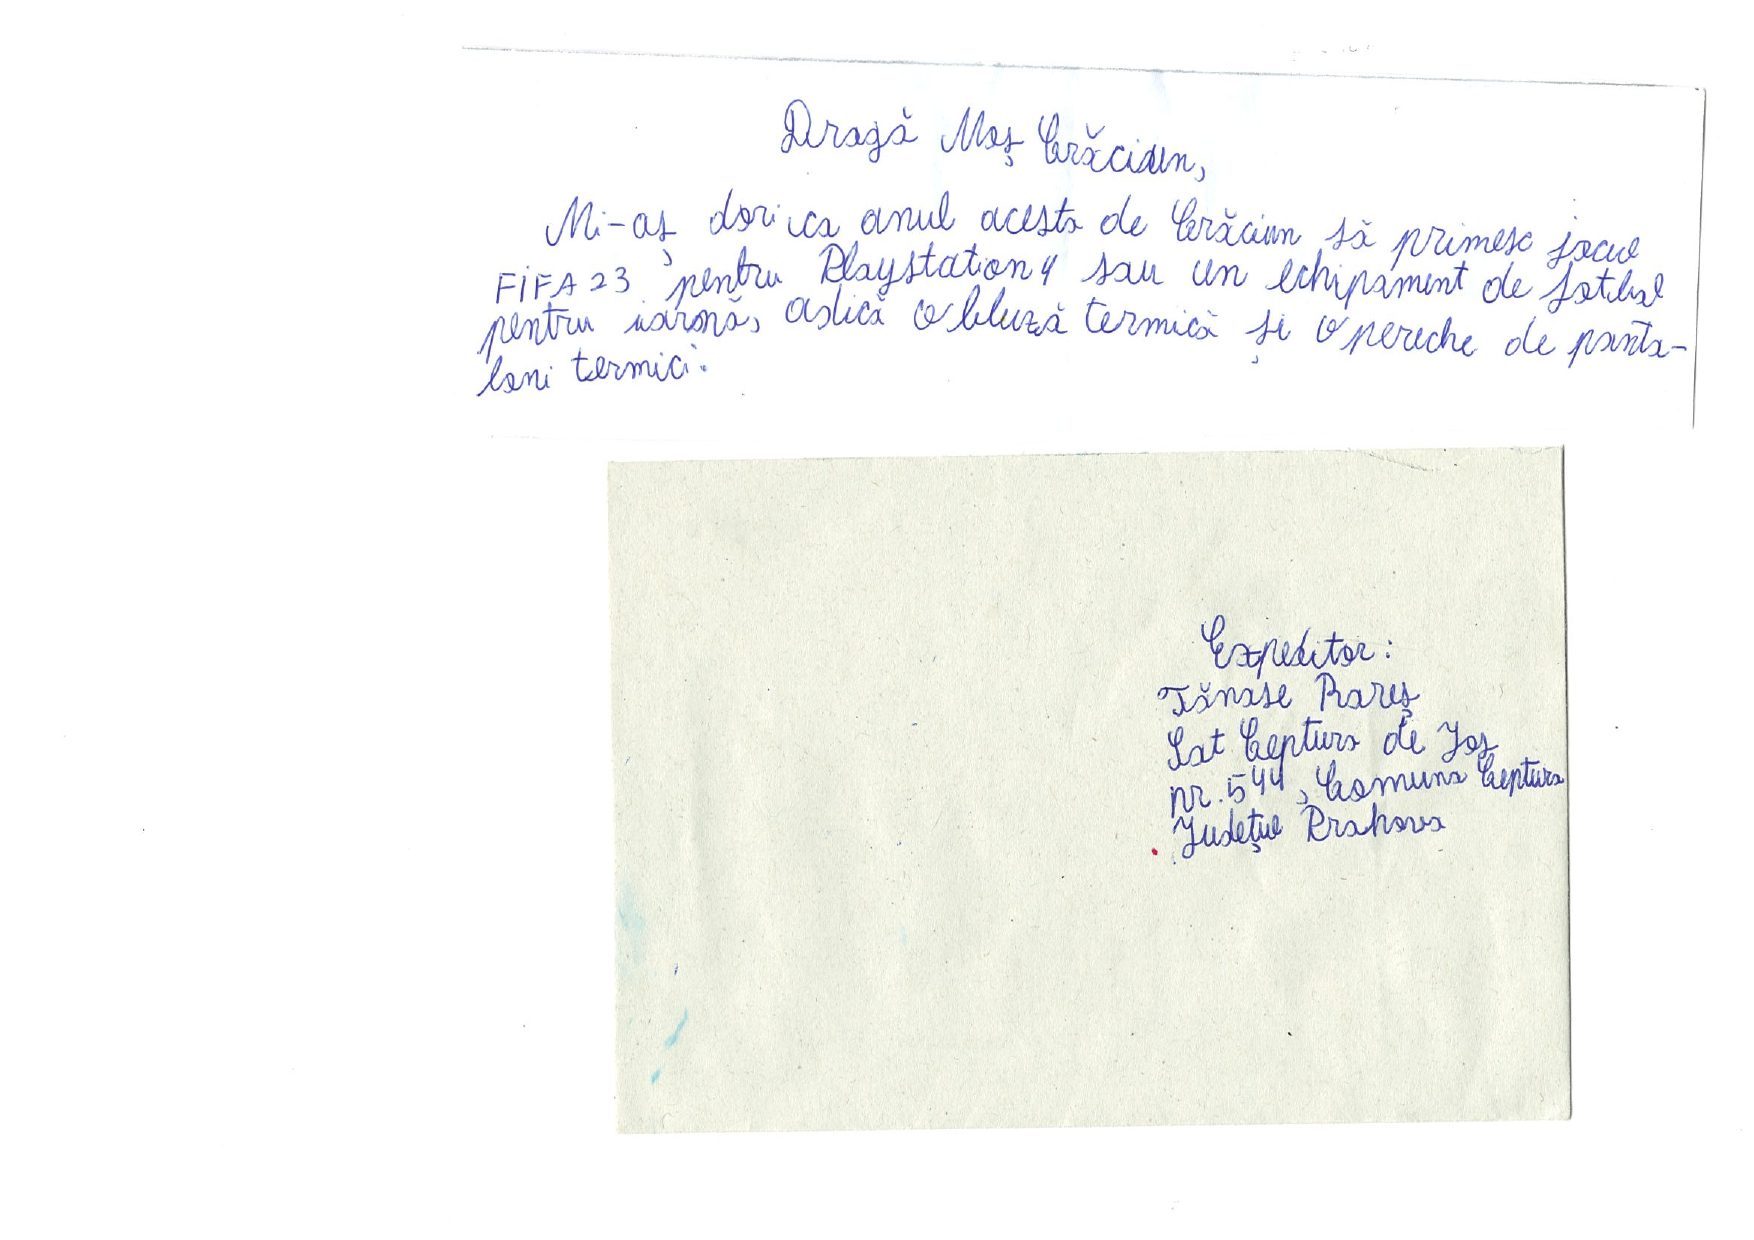 Dragă Moș Crăciun,
Mi-aș dori ca anul acesta de Crăciun să primesc jocul
FIFA 23 pentru Playstation 4 sau un echipament de fotbal
pentru iarnă, adică o bluză termică și o pereche de panta-
loni termici.
Expeditor:
Tănase Rareș
Sat Ceptura de Jos
nr. 544, Comuna Ceptura
Județul Prahova